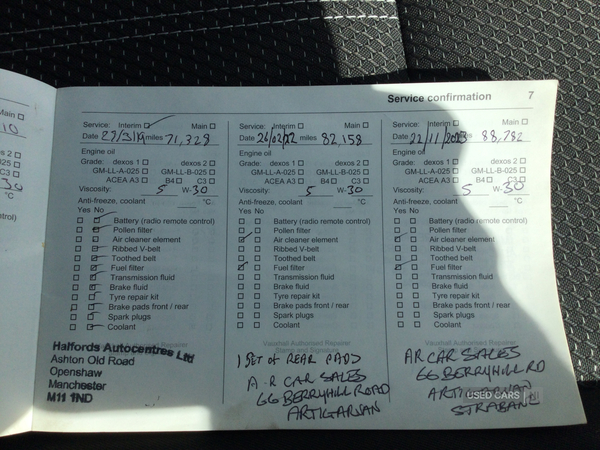 Service confirmation 7
Main
10
2
025
C3
30
trol)
Service: Interim Main
Date 29/3/19 miles 71,728
Engine oil
Grade: dexos 1 dexos 2
GM-LL-A-025 GM-LL-B-025
ACEA A3 B4 C3
Viscosity: 5 W-30
Anti-freeze, coolant °C
Yes No
Battery (radio remote control)
Pollen filter
Air cleaner element
Ribbed V-belt
Toothed belt
Fuel filter
Transmission fluid
Brake fluid
Tyre repair kit
Brake pads front / rear
Spark plugs
Coolant
Halfords Autocentres Ltd
Ashton Old Road
Openshaw
Manchester
M11 1ND
Service: Interim Main
Date 26/02/22 miles 82,158
Engine oil
Grade: dexos 1 dexos 2
GM-LL-A-025 GM-LL-B-025
ACEA A3 B4 C3
Viscosity: 5 W-30
Anti-freeze, coolant °C
Yes No
Battery (radio remote control)
Pollen filter
Air cleaner element
Ribbed V-belt
Toothed belt
Fuel filter
Transmission fluid
Brake fluid
Tyre repair kit
Brake pads front / rear
Spark plugs
Coolant
Vauxhall Authorised Repairer
Stamp and Signature
1 SET OF REAR PADS
A.R CAR SALES
66 BERRYHILL ROAD
ARTIGARVAN
Service: Interim Main
Date 22/11/2023 miles 88,782
Engine oil
Grade: dexos 1 dexos 2
GM-LL-A-025 GM-LL-B-025
ACEA A3 B4 C3
Viscosity: 5 W-30
Anti-freeze, coolant °C
Yes No
Battery (radio remote control)
Pollen filter
Air cleaner element
Ribbed V-belt
Toothed belt
Fuel filter
Transmission fluid
Brake fluid
Tyre repair kit
Brake pads front / rear
Spark plugs
Coolant
Vauxhall Authorised Repairer
AR CAR SALES
66 BERRYHILL RD
ARTIGARVAN
STRABANE
USED CARS NI